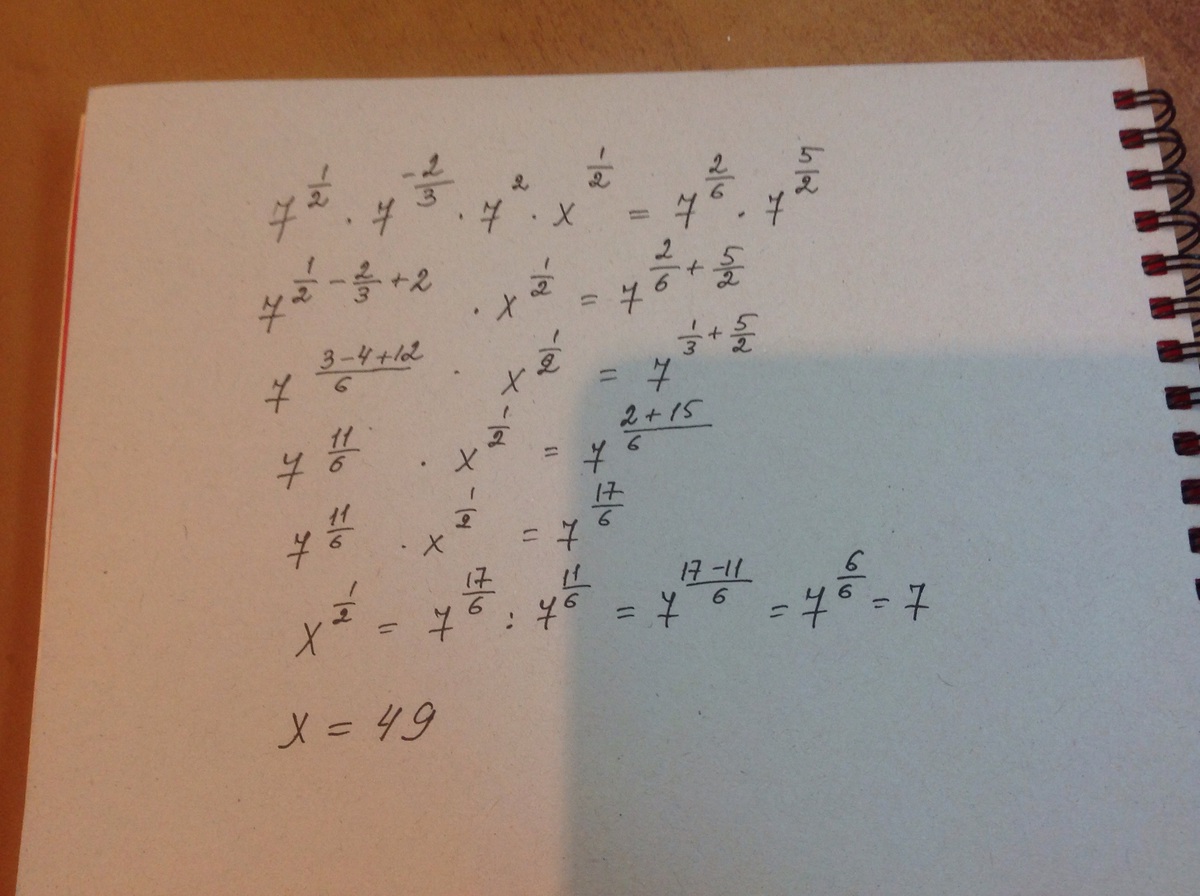 7^(1/2) · 7^(-2/3) · 7^2 · x^(1/2) = 7^(2/6) · 7^(5/2)
7^(1/2 - 2/3 + 2) · x^(1/2) = 7^(2/6 + 5/2)
7^((3-4+12)/6) · x^(1/2) = 7^(1/3 + 5/2)
7^(11/6) · x^(1/2) = 7^((2+15)/6)
7^(11/6) · x^(1/2) = 7^(17/6)
x^(1/2) = 7^(17/6) : 7^(11/6) = 7^((17-11)/6) = 7^(6/6) = 7
x = 49